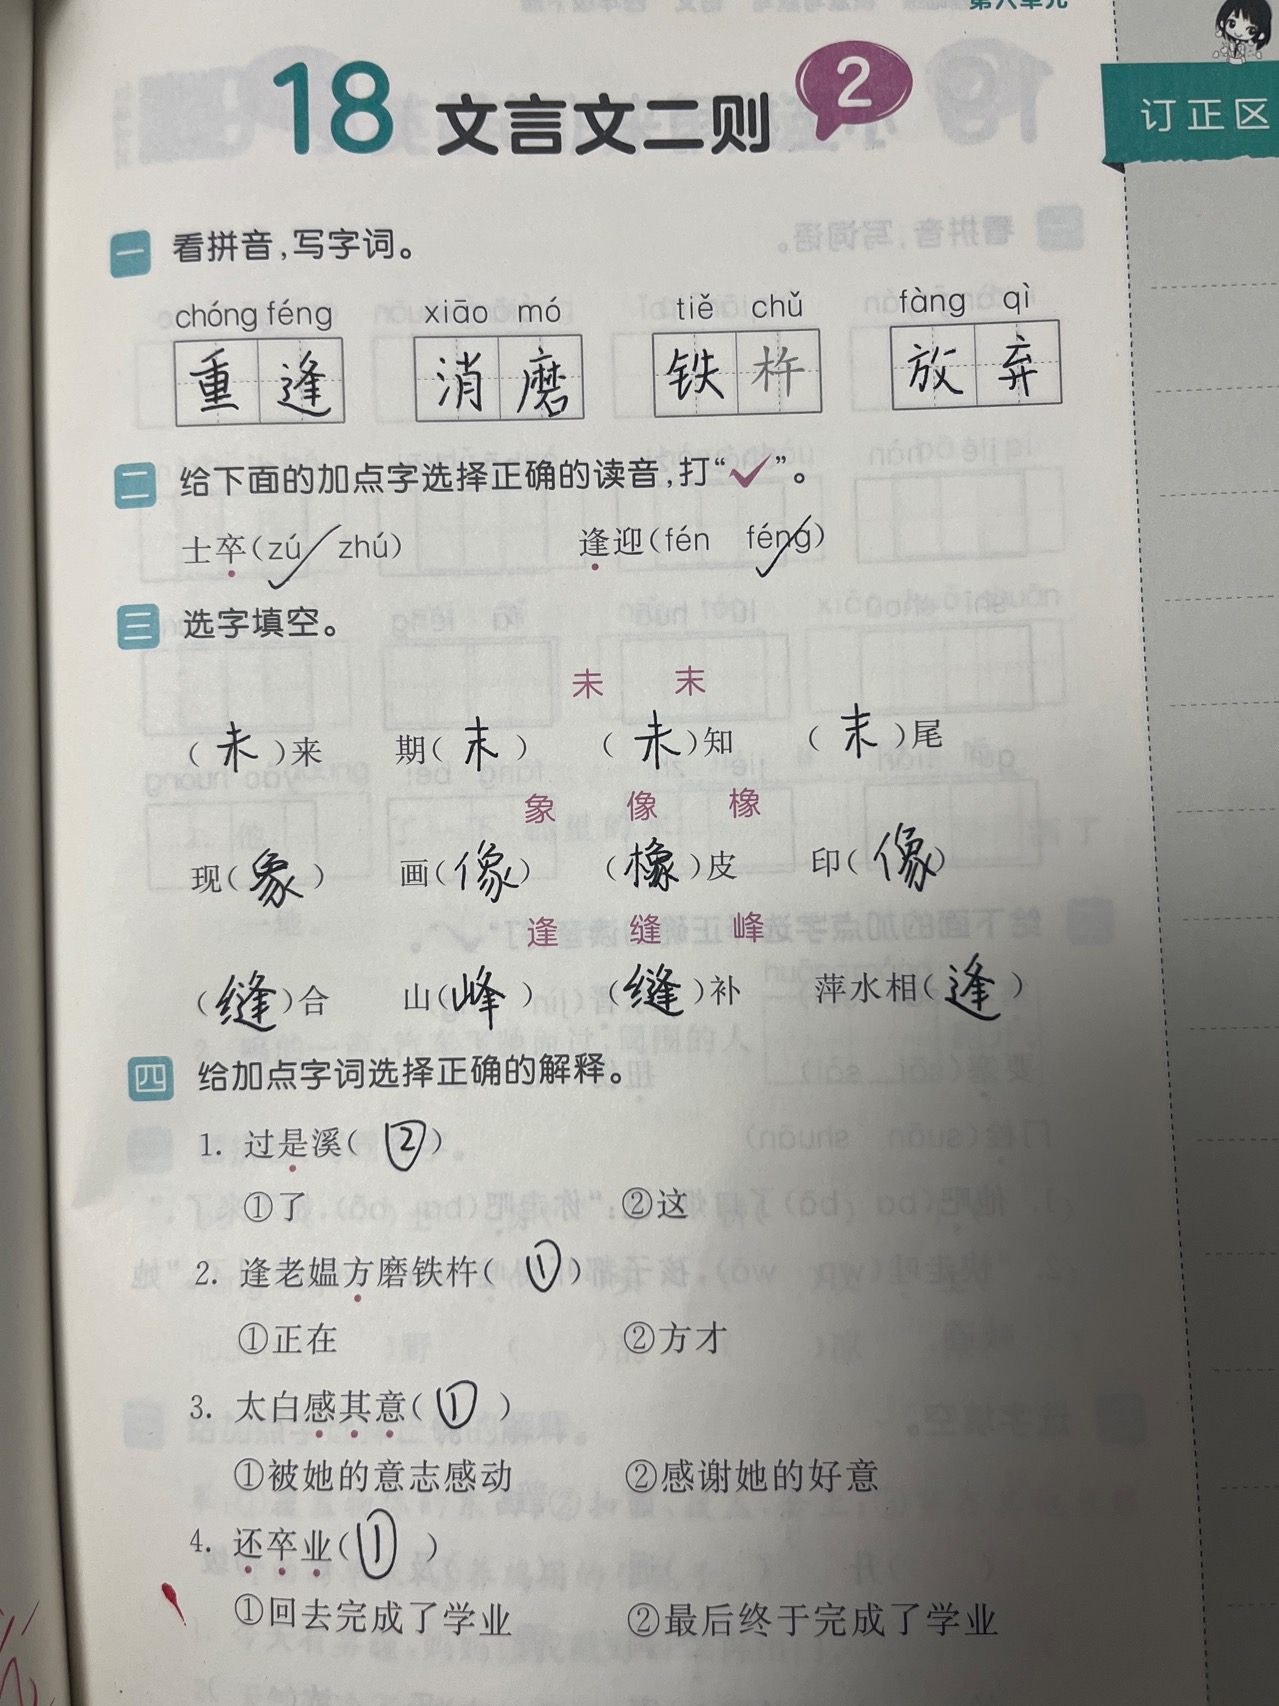 第六单元
18 文言文二则 2
订正区
一 看拼音,写字词。
chóng féng xiāo mó tiě chǔ fàng qì
重逢 消磨 铁杵 放弃
二 给下面的加点字选择正确的读音,打“✓”。
士卒(zú✓ zhú) 逢迎(fén féng✓)
三 选字填空。
未 末
(未)来 期(末) (未)知 (末)尾
象 像 橡
现(象) 画(像) (橡)皮 印(像)
逢 缝 峰
(缝)合 山(峰) (缝)补 萍水相(逢)
四 给加点字词选择正确的解释。
1. 过是溪(②)
①了 ②这
2. 逢老媪方磨铁杵(①)
①正在 ②方才
3. 太白感其意(①)
①被她的意志感动 ②感谢她的好意
4. 还卒业(①)
①回去完成了学业 ②最后终于完成了学业